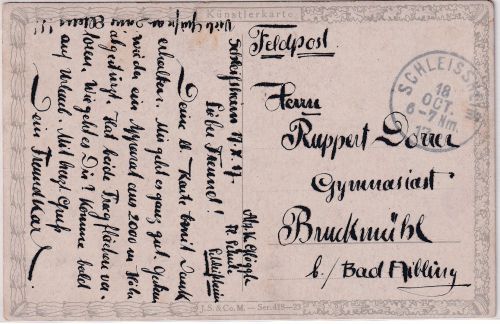 Künstlerkarte
Feldpost.
SCHLEISSHEIM
18
OCT.
6-7 Nm.
17
Herrn
Ruppert Dorrer
Gymnasiast
Bruckmühl
b./ Bad Aibling
Viele Grüße an Deine Eltern!!!
Schleißheim 17.X.17.
Lieber Freund!
Deine lb. Karte ernst Dank
erhalten. Mir geht es ganz gut. Gestern
wieder ein Apparat aus 2000 m Höhe
abgestürzt. Hat beide Tragflächen ver-
loren. Wie geht es Dir? Komme bald
auf Urlaub. Mit herzl. Gruß
Dein Freund Karl
Abs. K.
Fl. Schule
Schleißheim
J.S. & Co. M. – Ser. 418–23